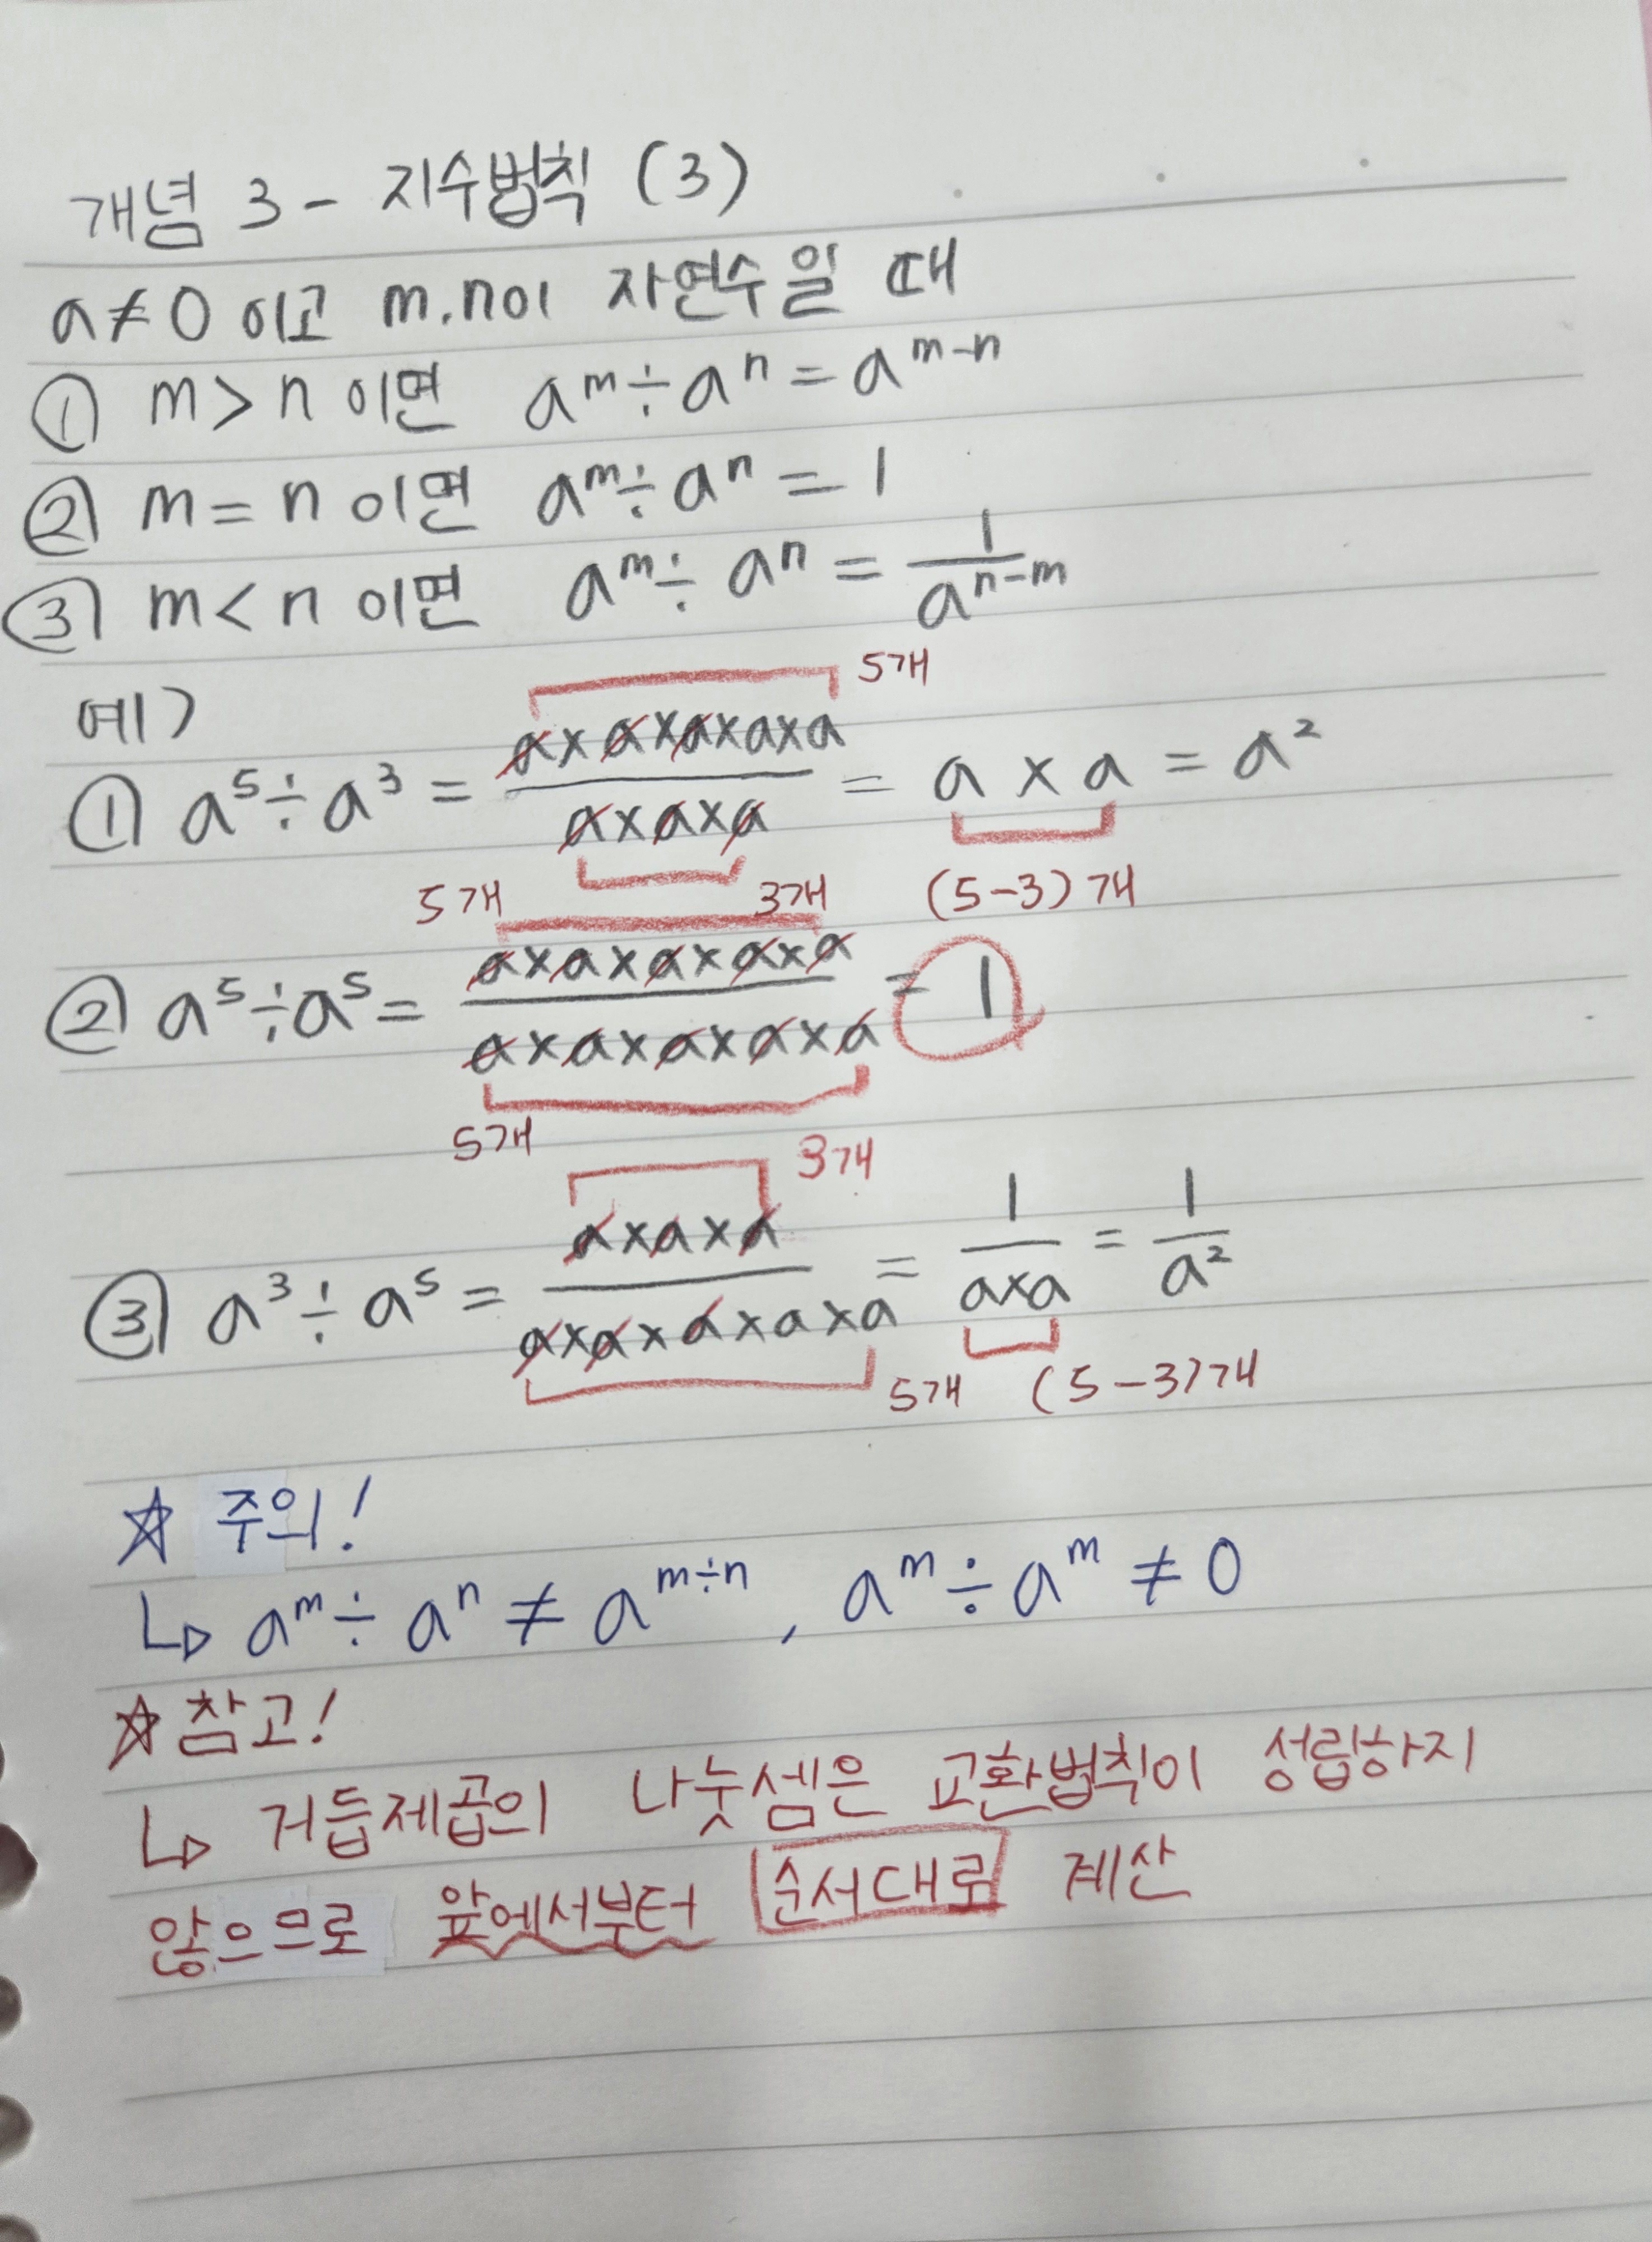 개념 3 - 지수법칙 (3)
a≠0 이고 m.n이 자연수일 때
① m>n 이면 aᵐ÷aⁿ=aᵐ⁻ⁿ
② m=n 이면 aᵐ÷aⁿ=1
③ m<n 이면 aᵐ÷aⁿ=1/aⁿ⁻ᵐ
예)
5개
① a⁵÷a³ = (a×a×a×a×a)/(a×a×a) = a×a = a²
3개 (5-3)개
5개
② a⁵÷a⁵ = (a×a×a×a×a)/(a×a×a×a×a) = 1
5개
3개
③ a³÷a⁵ = (a×a×a)/(a×a×a×a×a) = 1/(a×a) = 1/a²
5개 (5-3)개
☆ 주의!
↳ aᵐ÷aⁿ≠aᵐ÷ⁿ, aᵐ÷aᵐ≠0
☆ 참고!
↳ 거듭제곱의 나눗셈은 교환법칙이 성립하지
않으므로 앞에서부터 순서대로 계산